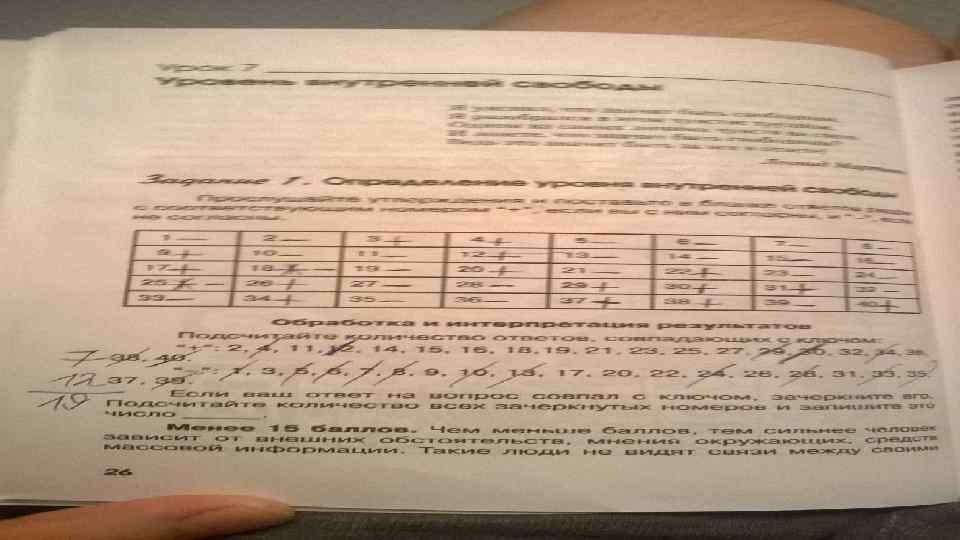 Урок 7
Уровень внутренней свободы
Задание 1. Определение уровня внутренней свободы
Прослушайте утверждения и поставьте в бланке ответов рядом
с соответствующим номером "+", если вы с ним согласны, и "-", если
не согласны.
1 — 2 — 3 + 4 + 5 — 6 — 7 — 8 —
9 + 10 — 11 — 12 + 13 — 14 — 15 — 16 —
17 + 18 — 19 — 20 + 21 — 22 + 23 — 24 —
25 — 26 + 27 — 28 — 29 + 30 + 31 + 32 —
33 — 34 + 35 — 36 — 37 + 38 + 39 — 40 +
Обработка и интерпретация результатов
Подсчитайте количество ответов, совпадающих с ключом:
"+": 2, 4, 11, 12, 14, 15, 16, 18, 19, 21, 23, 25, 27, 29, 30, 32, 34, 36,
7 38, 40.
"-": 1, 3, 5, 6, 7, 8, 9, 10, 13, 17, 20, 22, 24, 26, 28, 31, 33, 35,
12 37, 39.
19
Если ваш ответ на вопрос совпал с ключом, зачеркните его.
Подсчитайте количество всех зачеркнутых номеров и запишите это
число ________.
Менее 15 баллов. Чем меньше баллов, тем сильнее человек
зависит от внешних обстоятельств, мнения окружающих, средств
массовой информации. Такие люди не видят связи между своими
26